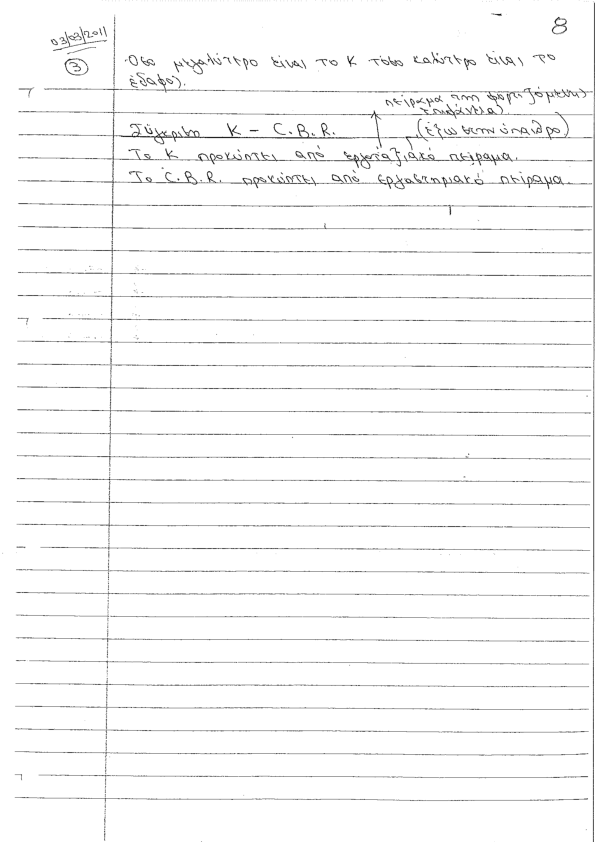 8
03/03/2011
3
Όσο μεγαλύτερο είναι το Κ τόσο καλύτερο είναι το
έδαφος.
πείραμα της φορτιζόμενης
επιφάνειας
Σύγκριση Κ - C.B.R. (έξω στην ύπαιθρο)
Το Κ προκύπτει από εργοταξιακό πείραμα.
Το C.B.R. προκύπτει από εργαστηριακό πείραμα.